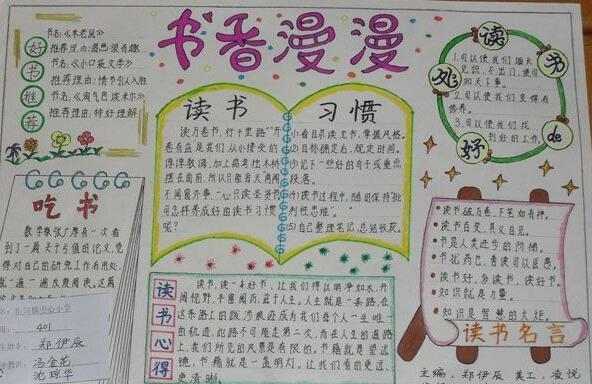 书香漫漫
好书推荐
书名:《木老鼠》
推荐理由:画面很有趣
书名:《小口袋大学》
推荐理由:情节引人入胜
书名:《淘气包埃米尔》
推荐理由:特好理解
吃书
数学家张广厚有一次看
到了一篇关于亏值的论文,觉
得对自己的研究工作有用处,
就一遍一遍反复阅读。这篇
中心小学
401
郑伊辰
冯金花
沈琼华
读书
习惯
读万卷书,行千里路”开
卷有益是我们从小接受的
摆在面前,所以只能每天两闻
不闻窗外事,一心只读圣贤书
可怎样养成好的读书习惯
呢?
(1)看目录读全书,掌握风格。
(2)目标确定后,规定时间。
(3)记下一些好的句子或重点
段落。
(4)读书过程中,随时保持“批
判性思维”。
(5)自己整理笔记,总结收获。
读书de好处
1.可以使我们增长
见识,不出门,便可
知天下事。
2.可以使我们变得有
修养。
3.可以使我们找
到好的工作。
读书心得
读书,读一本好书,让我们得以明净如水,开
阔视野,丰富阅历,益于人生。人生就是一条路,在
这条路上的跋涉痕迹成为我们每个人一生唯一
的轨迹,此路不可能走第二次,而在人生的道路
上,我们所见的风景是有限的。书籍就是望远
镜,书籍就是一盏明灯。让我们看的更远、
更清晰。
读书破万卷,下笔如有神。
读书百变,其义自见。
书是人类进步的阶梯。
书犹药也,善读可以医愚。
读书好,多读书,读好书。
知识就是力量。
知识是智慧的火炬。
读书名言
主编:郑伊辰 美工:凌悦